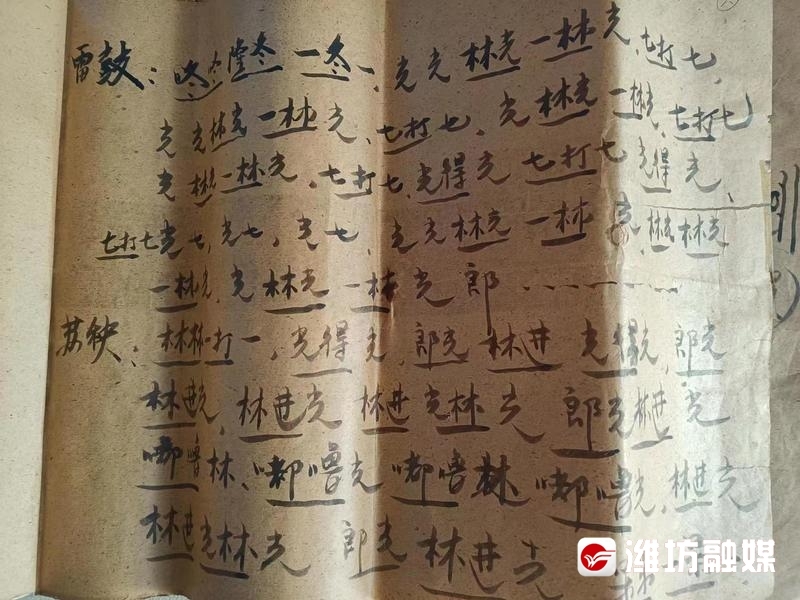 雷鼓：咚冬隆冬一冬一、光光林光一林光、七打七、
光光林光一林光、七打七、光林光一林光、七打七
光林一林光、七打七、光得光七打七光得光、
七打七光七、光七、光七、光光林光一林光、林光林光
一林光、光林光一林光郎…………
林林打一、光得光、郎光林进光得光、郎光
林进光、林进光林进光林光郎光林进光
嘟噜林、嘟噜光嘟噜林嘟噜光、林进光
林进光林光郎光林进光
潍坊融媒